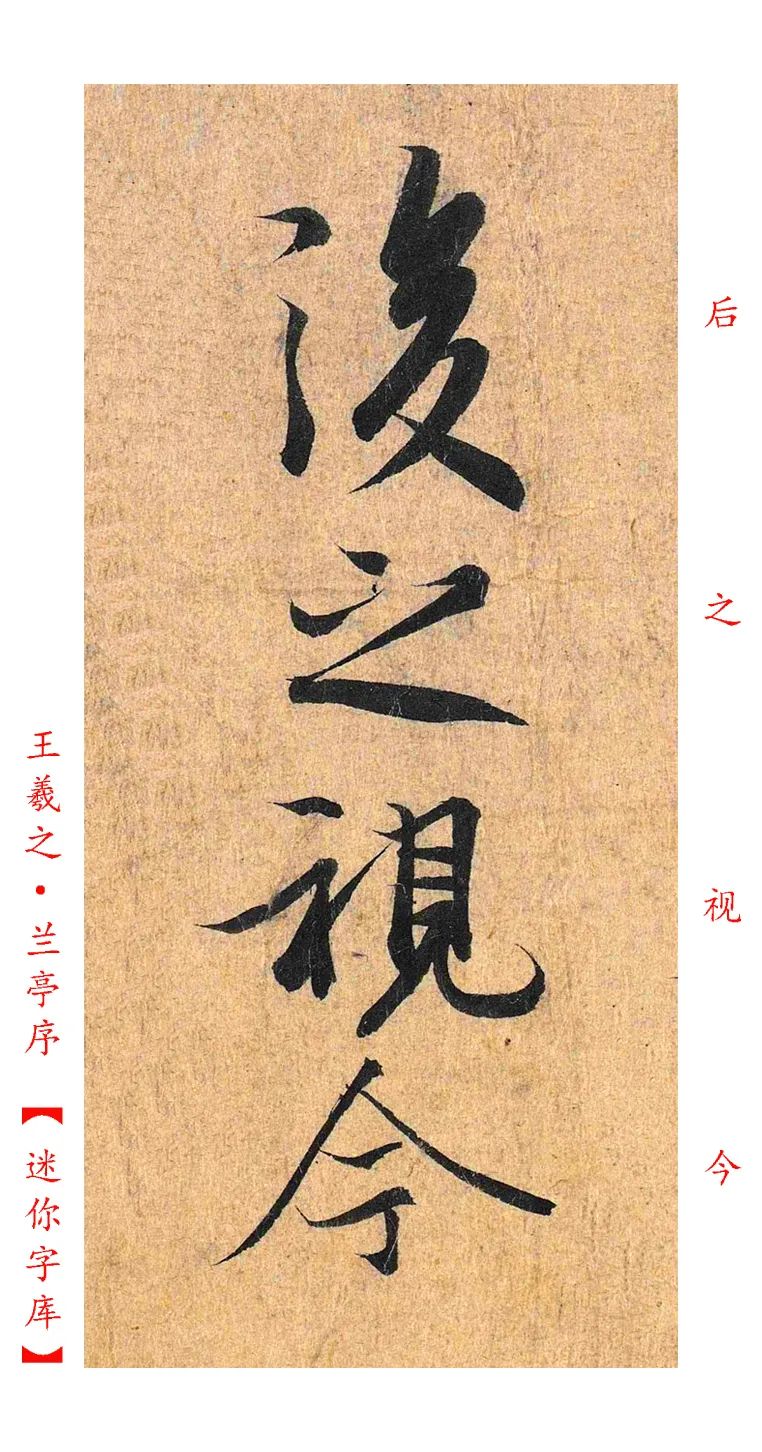 后之视今
後之視今
王羲之·兰亭序【迷你字库】